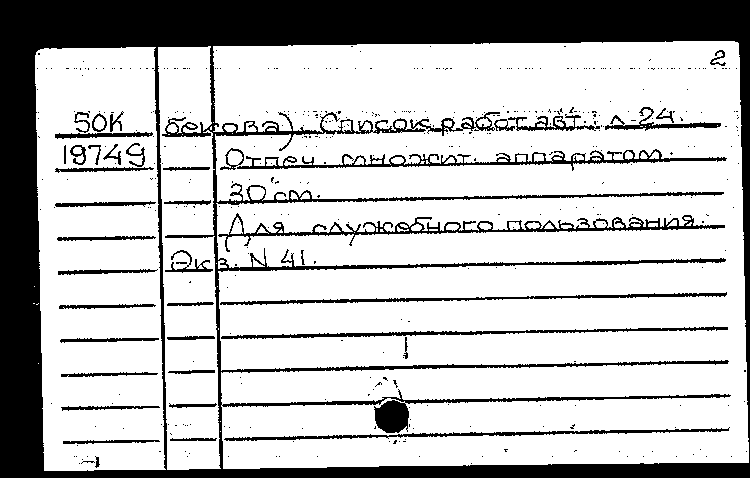 2
50К бекова). Список работ авт.: л. 24.
19749 Отпеч. множит. аппаратом.
30 см.
Для служебного пользования.
Экз. N 41.